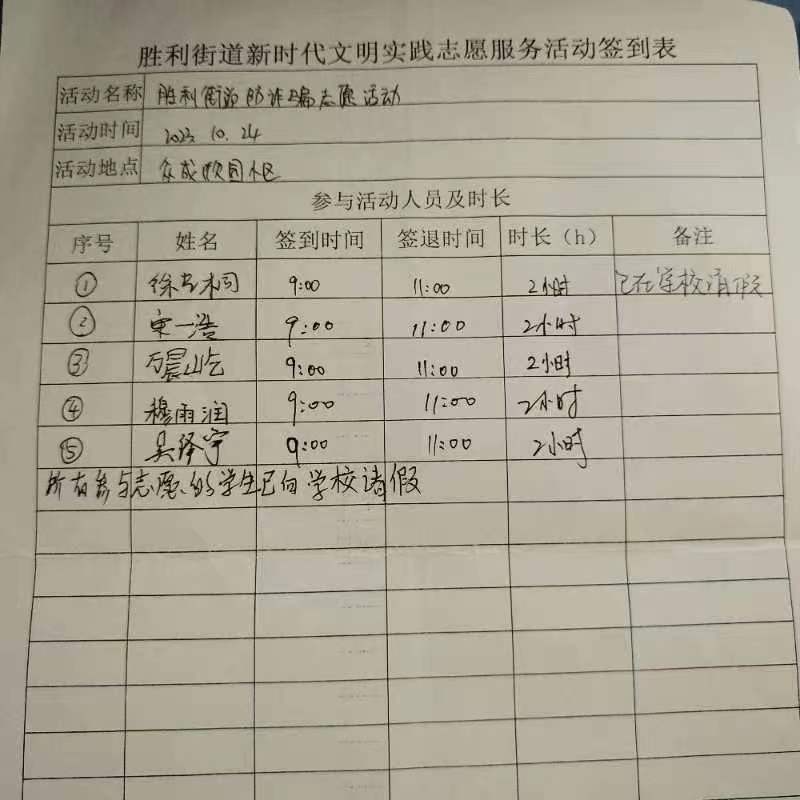 胜利街道新时代文明实践志愿服务活动签到表
活动名称 胜利街道防诈骗志愿活动
活动时间 2023.10.24
活动地点 众成 园小区
参与活动人员及时长
序号 姓名 签到时间 签退时间 时长（h） 备注
① 徐 桐 9:00 11:00 2小时 已在学校请假
② 宋一浩 9:00 11:00 2小时
③ 万晨屹 9:00 11:00 2小时
④ 穆雨润 9:00 11:00 2小时
⑤ 吴泽宇 9:00 11:00 2小时
所有参与志愿的学生已向学校请假